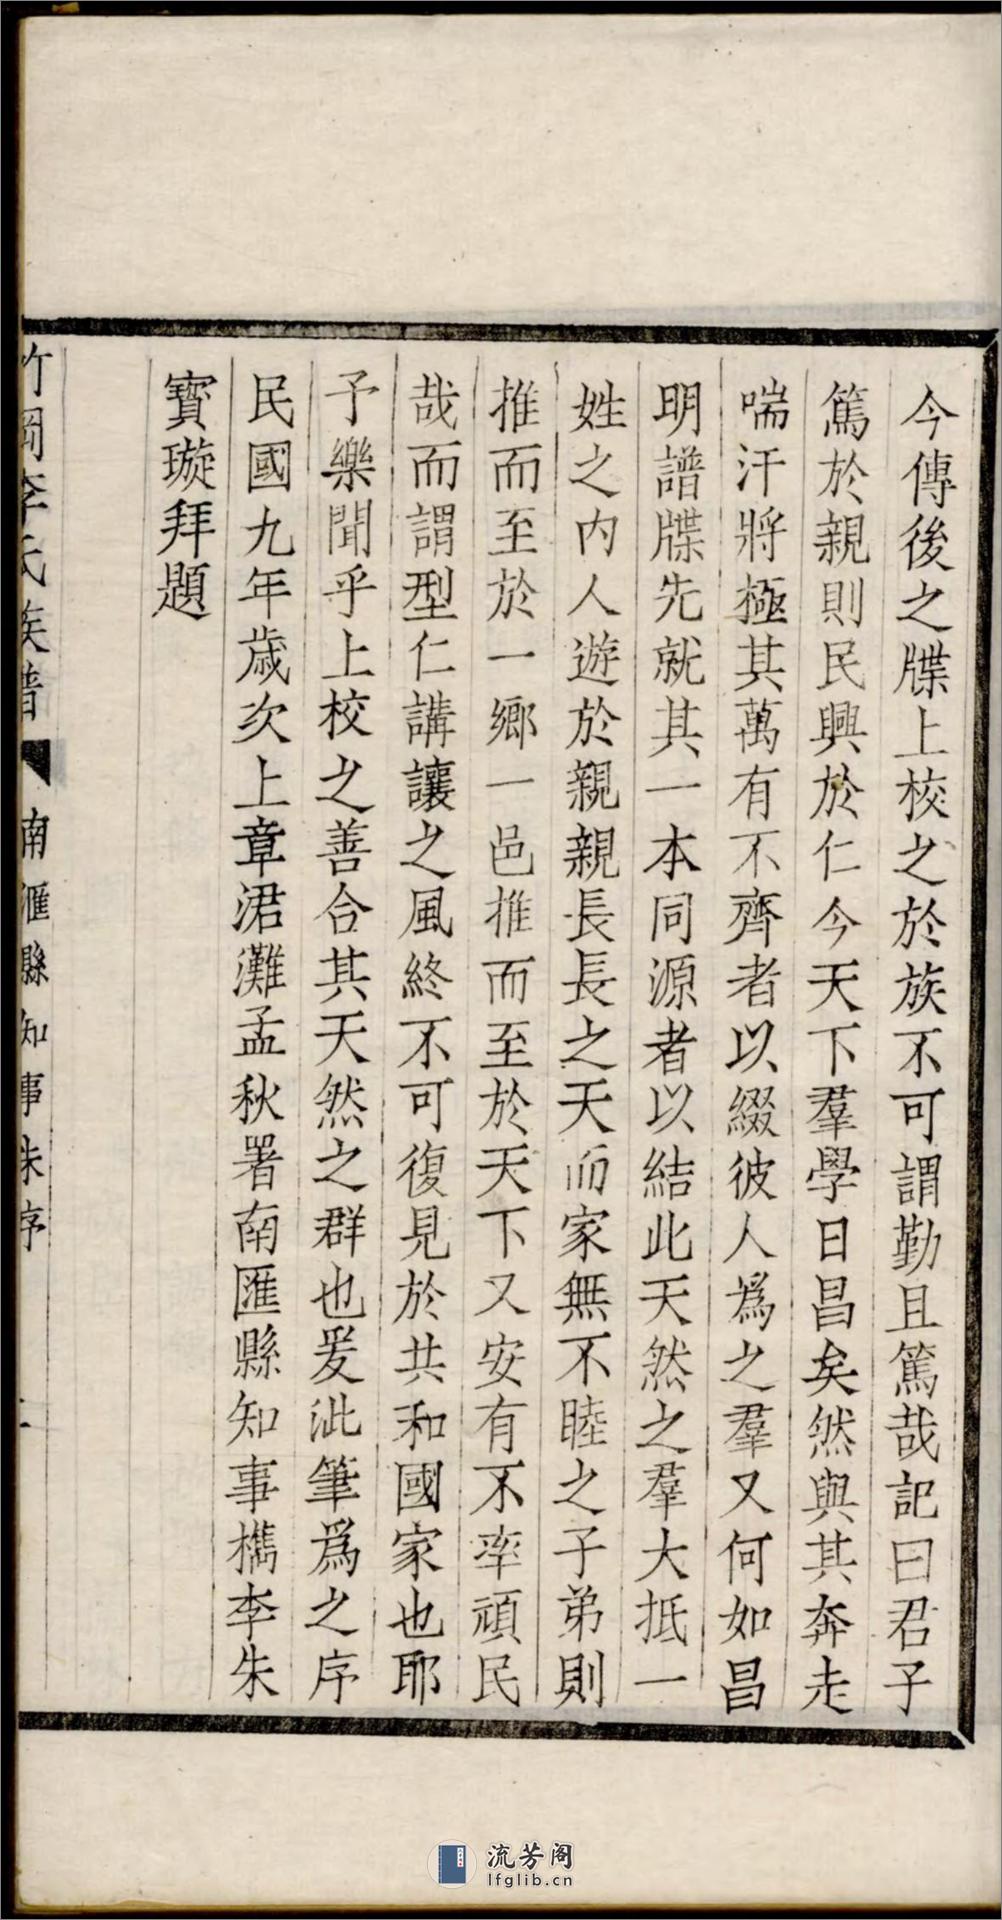 今傳後之牒上校之於族不可謂勤且篤哉記曰君子
篤於親則民興於仁今天下羣學日昌矣然與其奔走
喘汗將極其萬有不齊者以綴彼人爲之羣又何如昌
明譜牒先就其一本同源者以結此天然之羣大抵一
姓之內人遊於親親長長之天而家無不睦之子弟則
推而至於一鄉一邑推而至於天下又安有不率頑民
哉而謂型仁講讓之風終不可復見於共和國家也耶
予樂聞乎上校之善合其天然之群也爰泚筆爲之序
民國九年歲次上章涒灘孟秋署南匯縣知事檇李朱
寶璇拜題
竹岡李氏族譜 南滙縣知事朱序
流芳阁
lfglib.cn